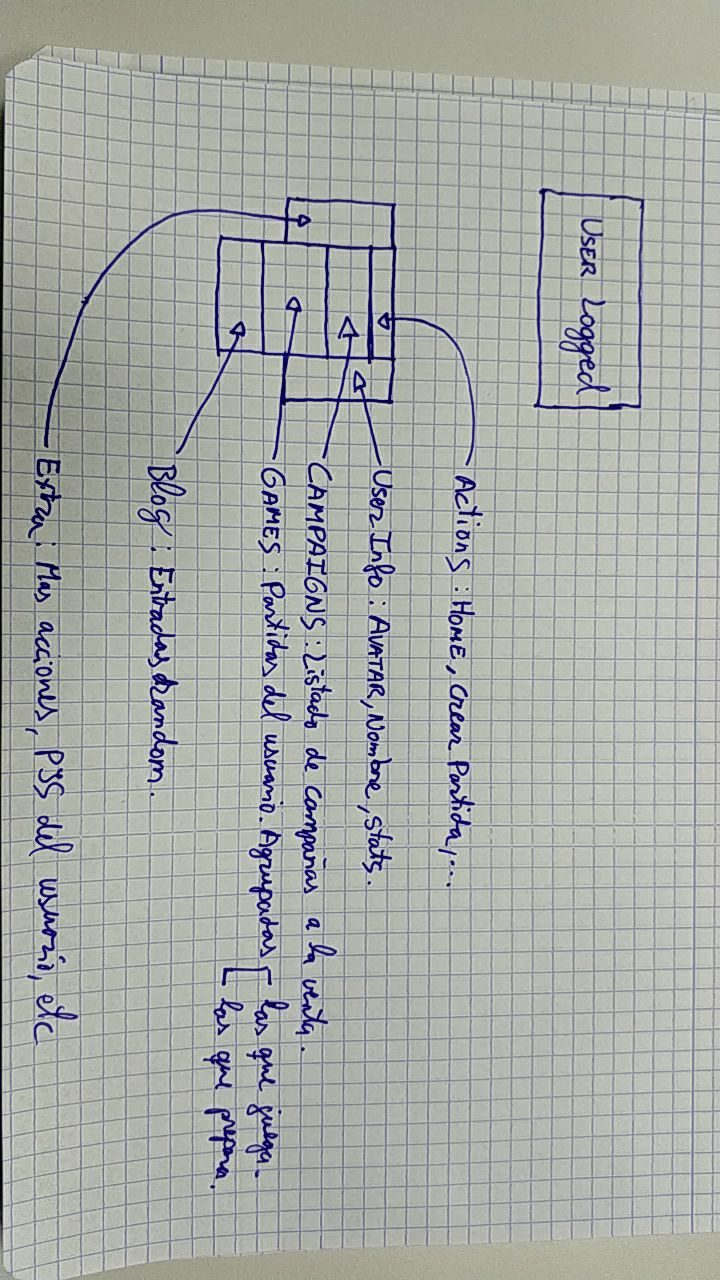 USER Logged
Actions : HOME, Crear Partida, ...
User Info : AVATAR, Nombre, stats.
CAMPAIGNS : Listado de campañas a la venta.
GAMES : Partidas del usuario. Agrupadas
las que juega.
las que prepara.
Blog : Entradas random.
Extra : Mas acciones, PJS del usuario, etc